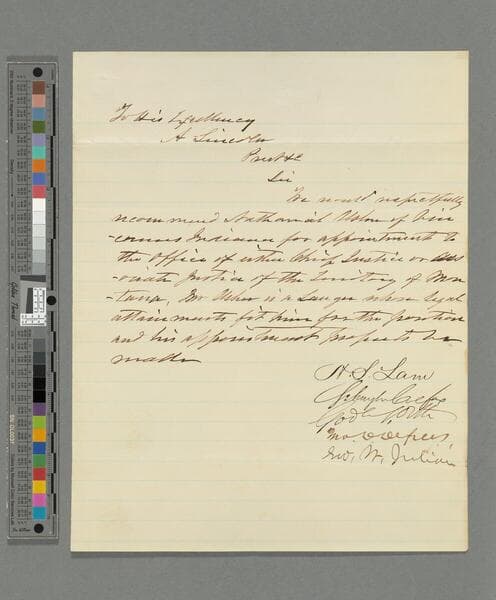 To His Excellency
A Lincoln
Prest &c
Sir
We would respectfully
recommend Nathaniel Usher of Vin
-cennes Indiana for appointment to
the Office of either Chief Justice or Ass
-ociate Justice of the Territory of Mon
-tana, Mr Usher is a Lawyer whose legal
attainments fit him for the position
and his appointment prospects be
made
H. S. Lane
Schuyler Colfax
Godlove S. Orth
Geo. W. Julian